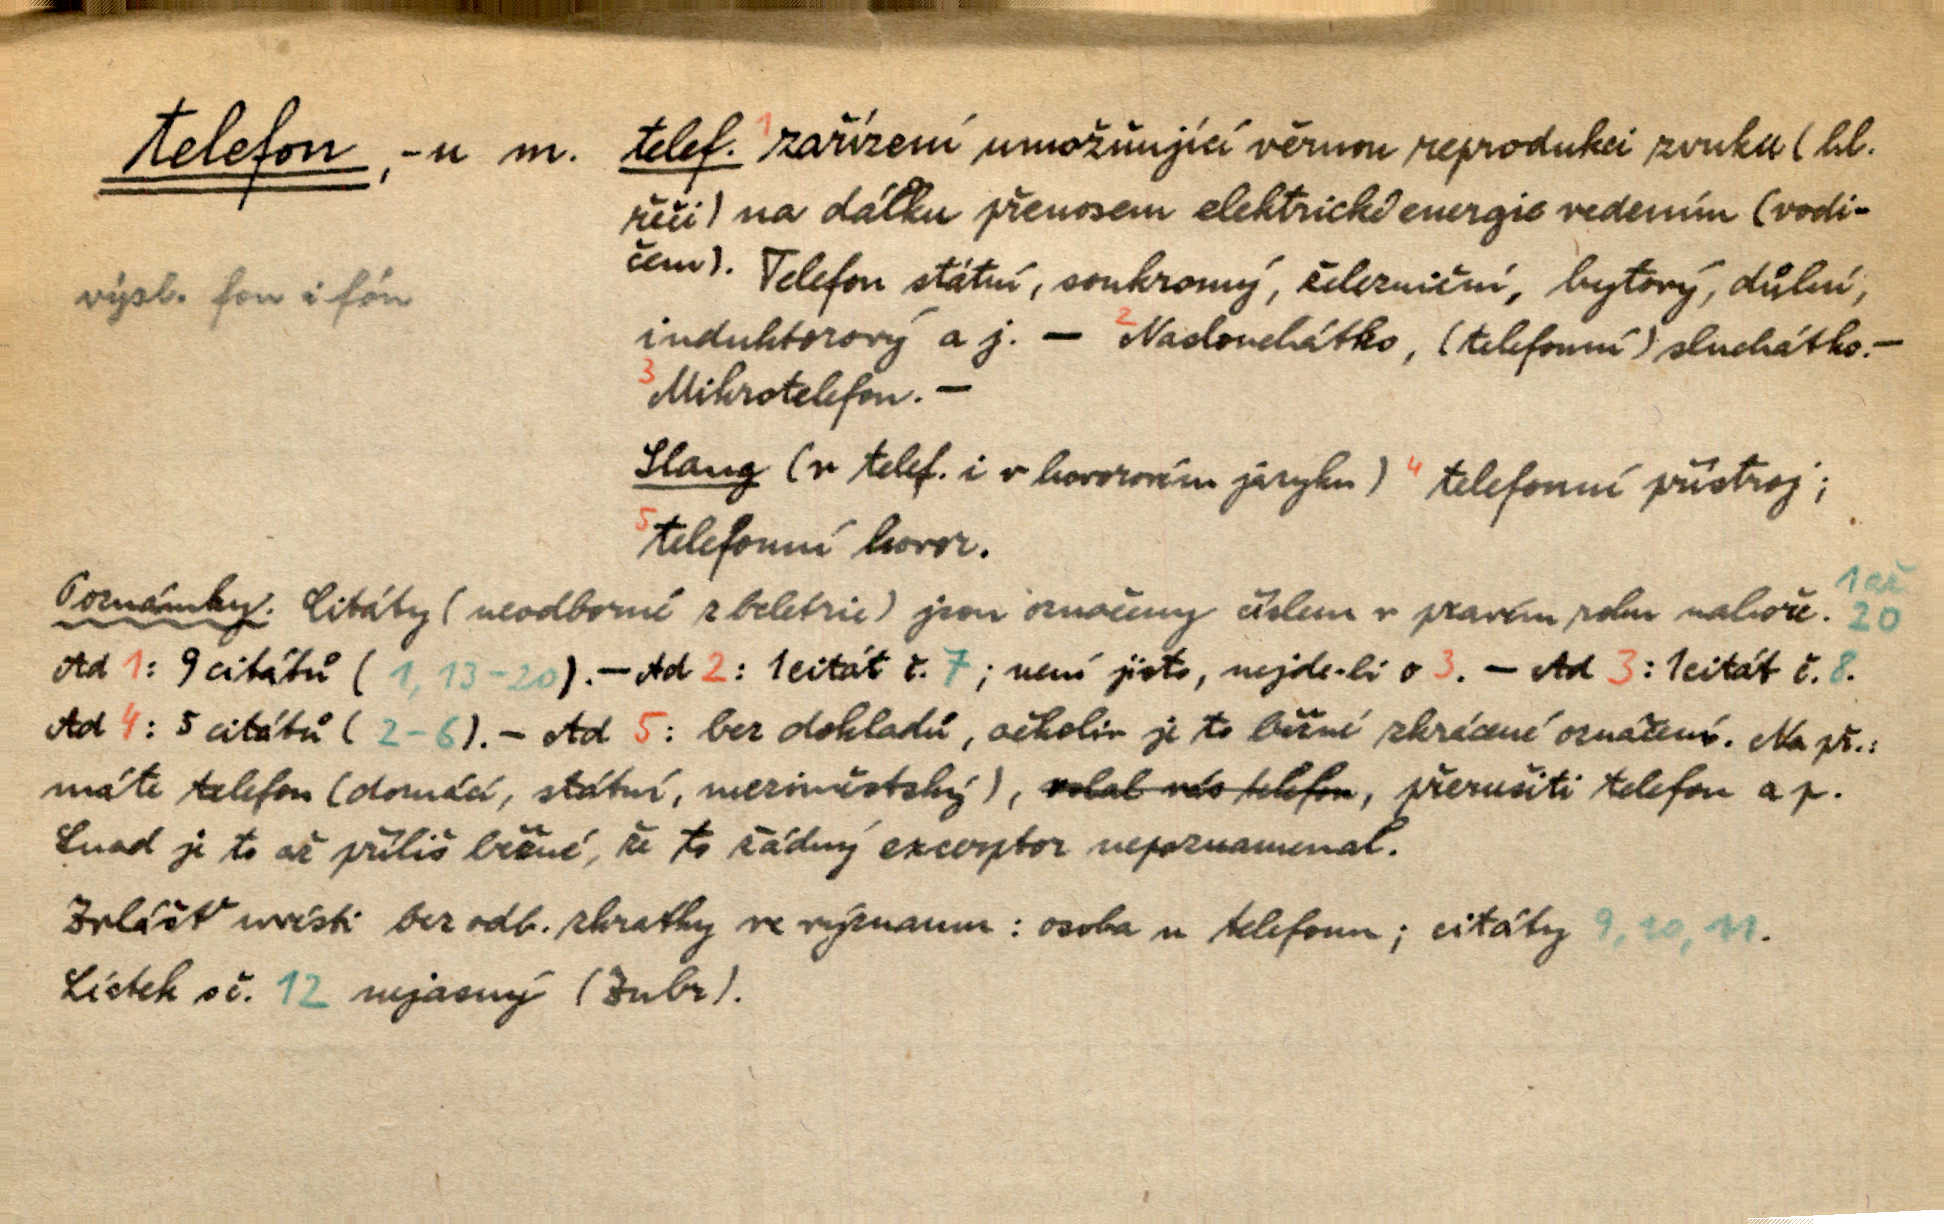 telefon, -u m. telef. 1 zařízení umožňující věrnou reprodukci zvuku (hl.
řeči) na dálku přenosem elektrické energie vedením (vodi-
čem). Telefon státní, soukromý, železniční, bytový, důlní,
výsl. fon i fón
induktorový a j. — 2 Naslouchátko, (telefonní) sluchátko. —
3 Mikrotelefon. —
Slang (v telef. i v hovorovém jazyku) 4 telefonní přístroj;
5 telefonní hovor.
Poznámky: Citáty (neodborné z beletrie) jsou označeny číslem v pravém rohu nahoře. 1 až 20
Ad 1: 9 citátů (1, 13-20). — Ad 2: 1 citát č. 7; není jisto, nejde-li o 3. — Ad 3: 1 citát č. 8.
Ad 4: 5 citátů (2-6). — Ad 5: bez dokladů, ačkoliv je to běžné zkrácené označení. Na př.:
máte telefon (domácí, státní, meziměstský), volal vás telefon, přerušiti telefon a p.
Snad je to až příliš běžné, že to žádný excerptor nepoznamenal.
Zvlášť uvésti bez odb. zkratky ve významu: osoba u telefonu; citáty 9, 10, 11.
Lístek s č. 12 nejasný (Zubr).